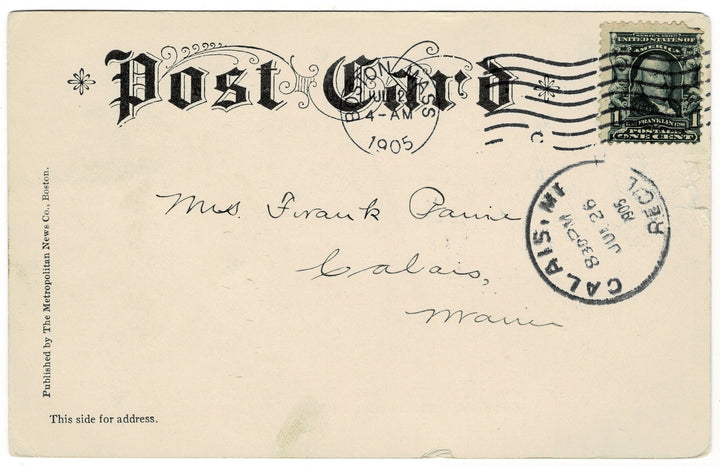 Post Card
BOSTON, MASS
4-AM
1905
SERIES 1902
UNITED STATES OF
AMERICA
1 FRANKLIN 1
POSTAGE
ONE CENT
Mrs. Frank Paine
Calais,
Maine
CALAIS, ME
8 30 PM
26
1905
REC'D.
Published by The Metropolitan News Co., Boston.
This side for address.